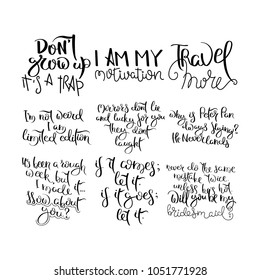 Don't
grow up
it's a trap
I AM MY
motivation
Travel
more
I'm not weird
I am
limited edition
Mirrors don't lie
and lucky for you
they don't
laught
Why is Peter Pan
always flying?
He Neverlands
It's been a rough
week but
I made it
How about
you?
if it comes;
let it
if it goes;
let it.
never do the same
mistake twice
unless he's hot
Will you be my
bridesmaid?
shutterstock.com • 1051771928